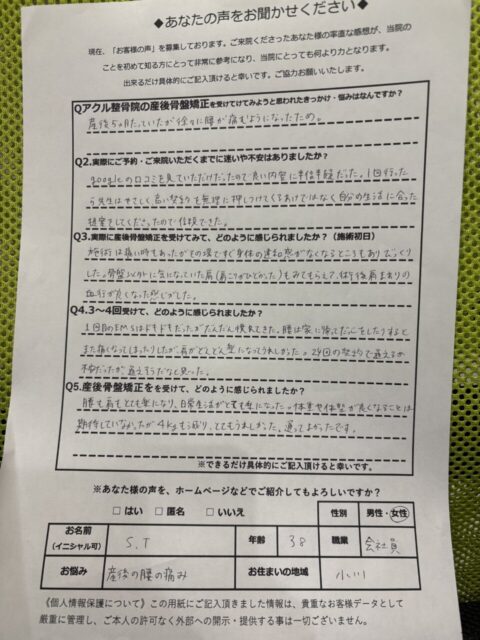 ◆あなたの声をお聞かせください◆
現在、「お客様の声」を募集しております。ご来院くださったあなた様の率直な感想が、当院の
ことを初めて知る方にとって非常に参考になり、当院にとっても何より力となります。
出来るだけ具体的にご記入頂けると幸いです。ご協力お願いいたします。
Qアクル整骨院の産後骨盤矯正を受けてけてみようと思われたきっかけ・悩みはなんですか?
産後5ヶ月たっていたが徐々に腰が痛むようになったため。
Q2.実際にご予約・ご来院いただくまでに迷いや不安はありましたか?
googleの口コミを見ていただけだったので良い内容に半信半疑だった。1回行った
ら先生はやさしく高い契約を無理に押しつけてくるわけではなく自分の生活に合った
提案をしてくださったので信頼できた。
Q3.実際に産後骨盤矯正を受けてみて、どのように感じられましたか?(施術初日)
施術は痛い時もあったがその場ですぐ身体の違和感がなくなるところもありびっくり
した。骨盤以外に気になっていた肩(肩こりがひどかった)もみてもらえて、術後肩まわりの
血行が良くなった感じがした。
Q4.3~4回受けて、どのように感じられましたか?
1回目のEMSはドキドキだったがだんだん慣れてきた。腰は家に帰ってだっこをしたりすると
また痛くなってしまったりしたが、肩がどんどん楽になってうれしかった。24回の契約で通えるか
不安だったが通えそうだなと思った。
Q5.産後骨盤矯正をを受けて、どのように感じられましたか?
腰も肩もとても楽になり、日常生活がとても楽になった。体重や体型が良くなることは
期待していなかったが4kgも減り、とてもうれしかった。通ってよかったです。
※できるだけ具体的にご記入頂けると幸いです。
※あなた様の声を、ホームページなどでご紹介してもよろしいですか?
□ はい □ 匿名 □ いいえ
性別 男性・女性
お名前 (イニシャル可) S.T 年齢 38 職業 会社員
お悩み 産後の腰の痛み お住まいの地域 小川
《個人情報保護について》この用紙にご記入頂きました情報は、貴重なお客様データとして
厳重に管理し、ご本人の許可なく外部への開示・提供する事は一切ございません。